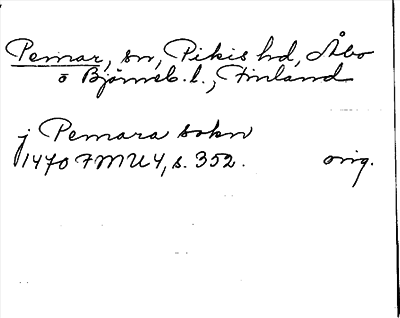 Pemar, sn, Pikis hd, Åbo
o Björneb. l., Finland
j Pemara sokn
1470 FMU 4, s. 352. orig.